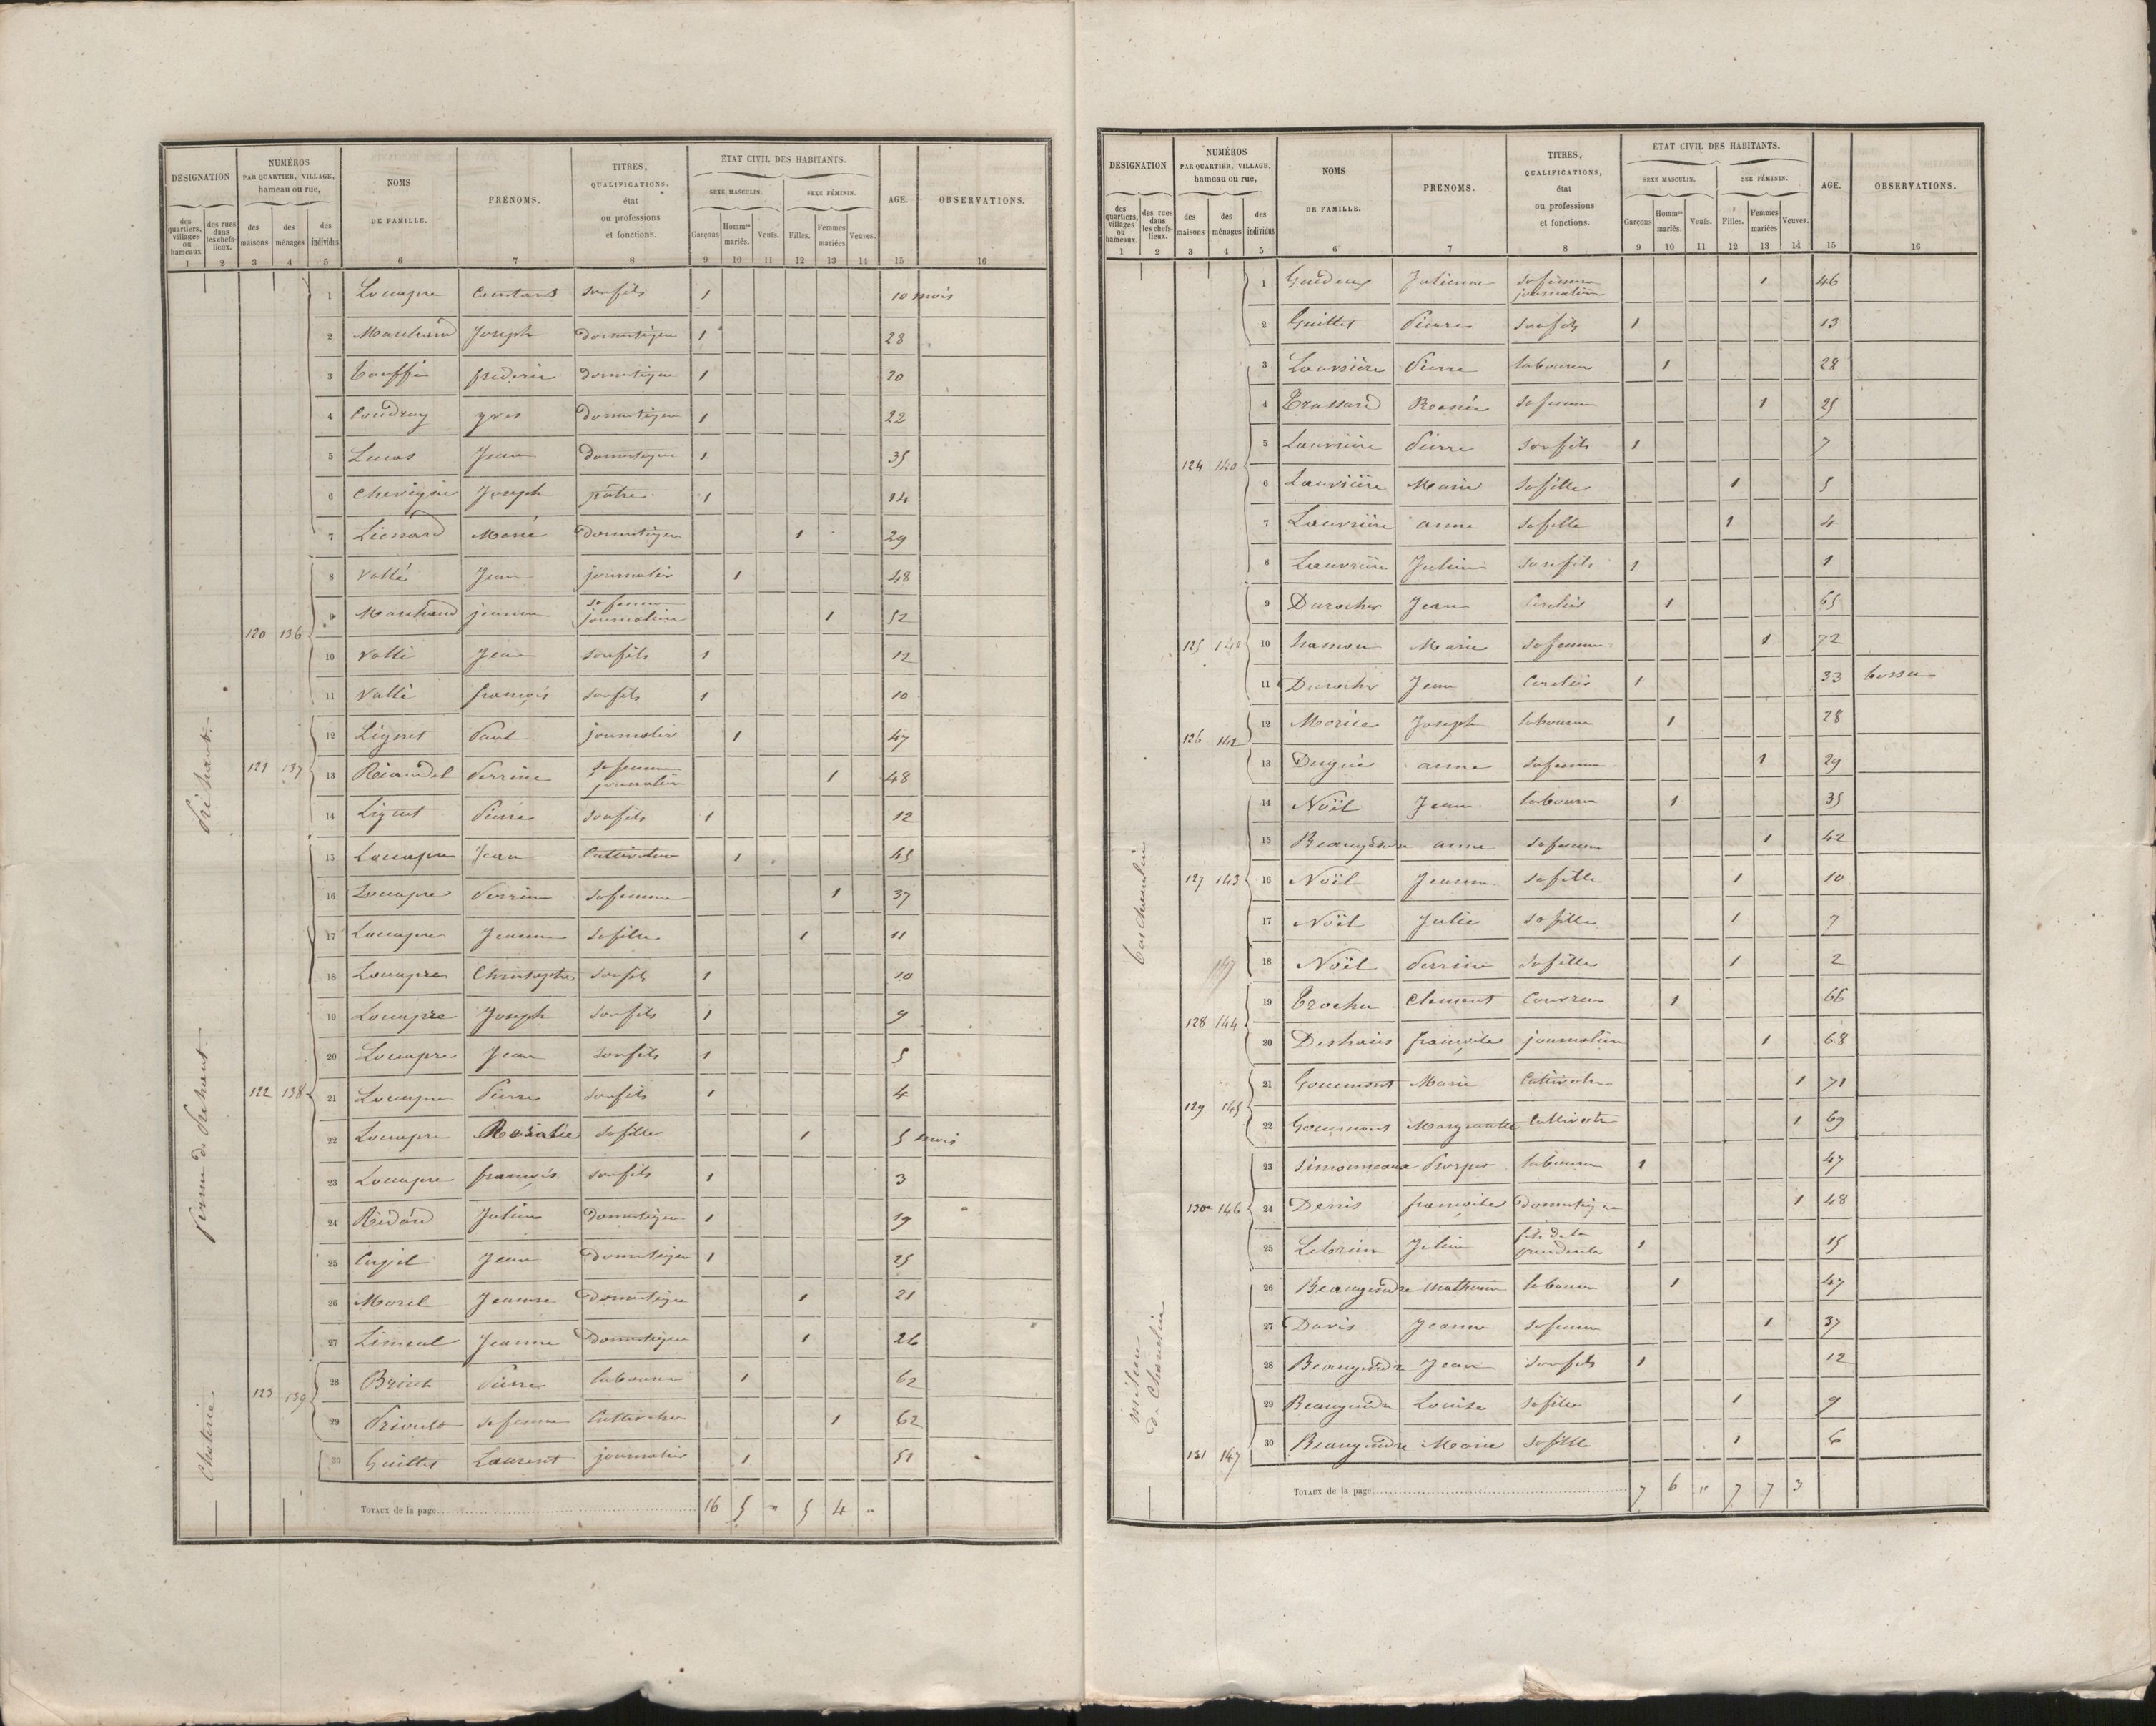 DESIGNATION NUMÉROS PAR QUARTIER, VILLAGE, hameau ou rue, NOMS DE FAMILLE. PRÉNOMS. TITRES, QUALIFICATIONS, état ou professions et fonctions. ÉTAT CIVIL DES HABITANTS. AGE. OBSERVATIONS.
SEXE MASCULIN. SEXE FÉMININ.
des quartiers, villages ou hameaux des rues dans les chefs-lieux. des maisons des ménages des individus Garçons Hommes mariés. Veufs. Filles. Femmes mariées Veuves.
1 2 3 4 5 6 7 8 9 10 11 12 13 14 15 16
1 Louapre Constant son fils 1 10 mois
2 Marchand Joseph domestique 1 28
3 frederic domestique 1 20
4 Coudray yves domestique 1 22
5 Lucas Jean domestique 1 35
6 Chevigné Joseph pâtre 1 14
7 Lienard Marie domestique 1 29
8 Vallé Jean journalier 1 48
120 136 9 Marchand jeanne sa femme journalière 1 52
10 Vallé Jean son fils 1 12
11 Vallé françois son fils 1 10
12 Lignet Paul journalier 1 47
121 137 13 Perrine sa femme journalière 1 48
14 Lignet Pierre son fils 1 12
15 Louapre Jean Cultivateur 1 45
16 Louapre Perrine sa femme 1 37
17 Louapre Jeanne sa fille 1 11
18 Louapre Christophe son fils 1 10
19 Louapre Joseph son fils 1 9
20 Louapre Jean son fils 1 5
122 138 21 Louapre Pierre son fils 1 4
22 Louapre Rosalie sa fille 1 5 mois
23 Louapre françois son fils 1 3
24 Ridard Julien domestique 1 19
25 Jean domestique 1 25
26 Morel Jeanne domestique 1 21
27 Limeul Jeanne domestique 1 26
123 139 28 Briot Pierre laboureur 1 62
29 Prioult sa femme Cultivatrice 1 62
30 Guillet Laurent journalier 1 51
TOTAUX de la page 16 5 " 5 4 "
DESIGNATION NUMÉROS PAR QUARTIER, VILLAGE, hameau ou rue, NOMS DE FAMILLE. PRÉNOMS. TITRES, QUALIFICATIONS, état ou professions et fonctions. ÉTAT CIVIL DES HABITANTS. AGE. OBSERVATIONS.
SEXE MASCULIN. SEXE FÉMININ.
des quartiers, villages ou hameaux. des rues dans les chefs-lieux. des maisons des ménages des individus Garçons Hommes mariés. Veufs. Filles. Femmes mariées Veuves.
1 2 3 4 5 6 7 8 9 10 11 12 13 14 15 16
1 Julienne sa femme journalière 1 46
2 Guillet Pierre son fils 1 13
3 Louvrière Pierre laboureur 1 28
4 Trassard Renée sa femme 1 25
5 Louvrière Pierre son fils 1 7
124 140 6 Louvrière Marie sa fille 1 5
7 Louvrière anne sa fille 1 4
8 Louvrière Julien son fils 1 1
9 Durocher Jean Cerclier 1 65
125 141 10 hamon Marie sa femme 1 72
11 Durocher Jean Cerclier 1 33 bossu
126 142 12 Morice Joseph laboureur 1 28
13 Dugué anne sa femme 1 29
14 Noël Jean laboureur 1 35
15 Beaugendre anne sa femme 1 42
127 143 16 Noël Jeanne sa fille 1 10
17 Noël Julie sa fille 1 7
147
18 Noël Perrine sa fille 1 2
19 Trochu Clement Couvreur 1 66
128 144 20 Deshaies françoise journalière 1 68
21 Gouemont Marie Cultivatrice 1 71
129 145 22 Gouemont Marguerite Cultivatrice 1 69
23 Simonneaux Prosper laboureur 1 47
130 146 24 Denis françoise domestique 1 48
25 Lebrun Julien fils de la précédente 1 15
26 Beaugendre Mathurin laboureur 1 47
27 Davis Jeanne sa femme 1 37
28 Beaugendre Jean son fils 1 12
29 Beaugendre Louise sa fille 1 9
131 147 30 Beaugendre Marie sa fille 1 6
TOTAUX de la page 7 6 " 7 7 3